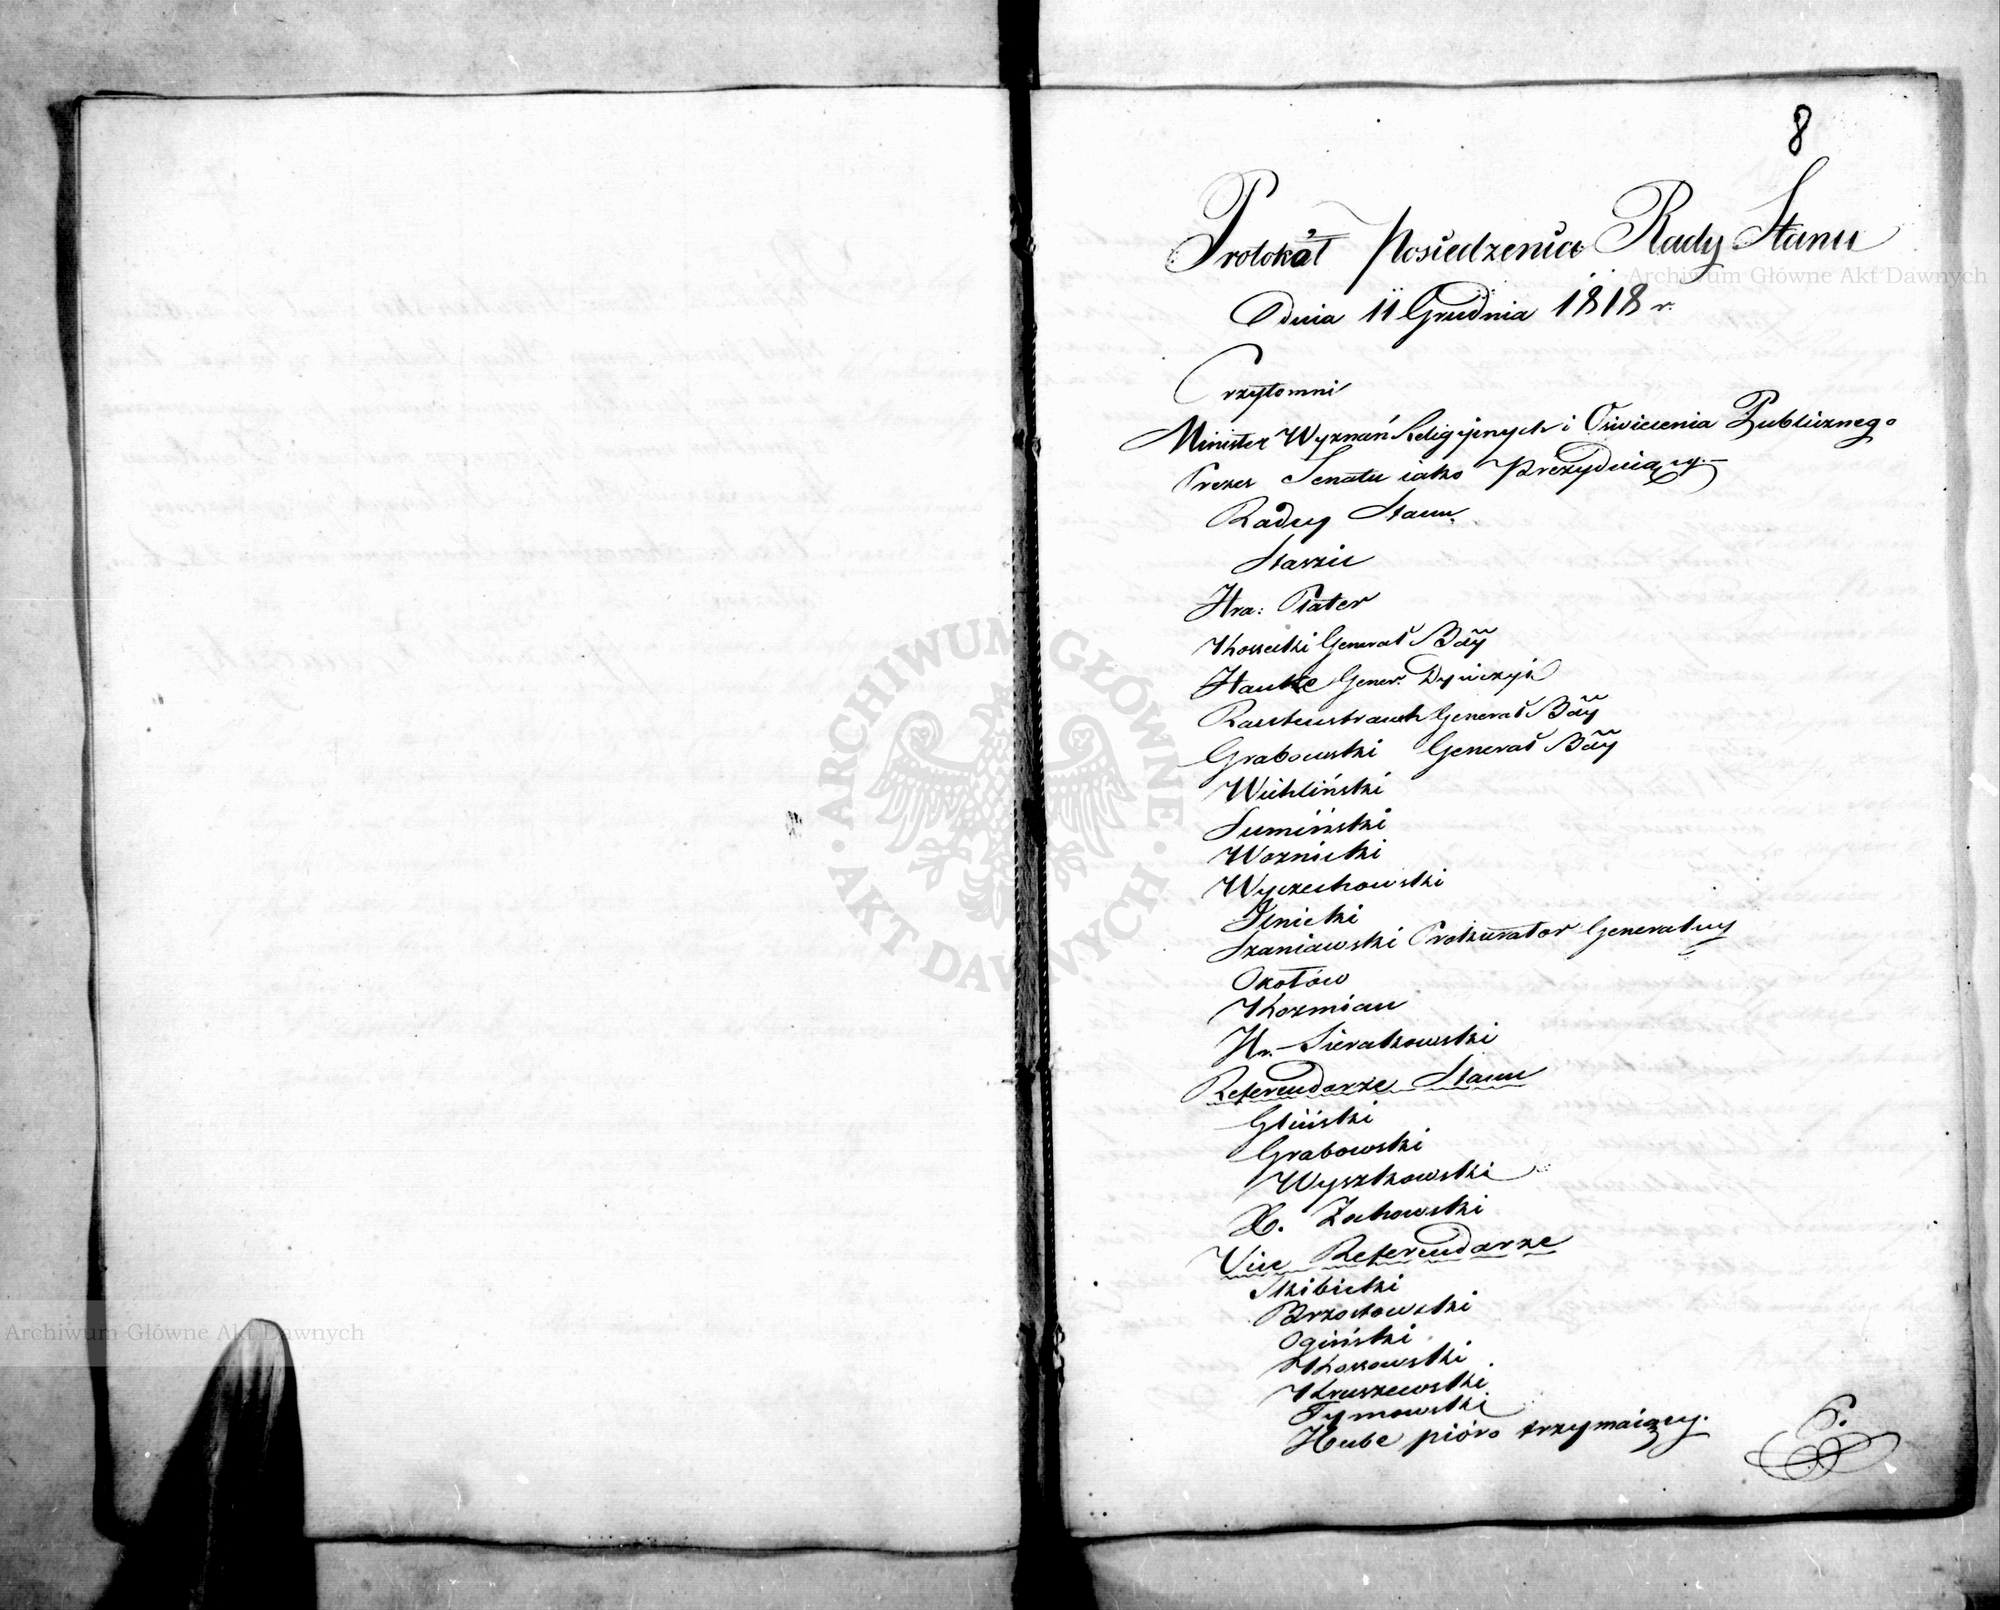 8
Protokół Posiedzenia Rady Stanu
dnia 11 Grudnia 1818 r.
Przytomni
Minister Wyznań Religijnych i Oświecenia Publicznego
Prezes Senatu iako Prezyduiący.
Radcy Stanu
Staszic
Hra: Plater
Kossecki Generał Bdÿ
Hauke Gener. Dywizyi
Rautenstrauch Generał Bdÿ
Grabowski Generał Bdÿ
Wichliński
Sumiński
Woznicki
Wyczechowski
Lnicki
Szaniawski Prokurator Generalny
Okołow
Kozmian
Hr. Sierakowski
Referendarze Stanu
Gliński
Grabowski
Wyszkowski
X. Żochowski
Vice Referendarze
Skibicki
Brzostowski
Ogiński
Kossowski
Kruszewski
Tymowski
Hube pióro trzymaiący.
6.
Archiwum Główne Akt Dawnych
Archiwum Główne Akt Dawnych
ARCHIWUM GŁÓWNE · AKT DAWNYCH ·